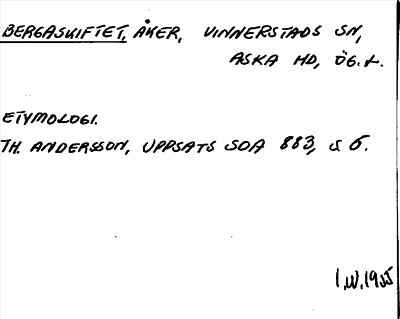 BERGASKIFTET, ÅKER, VINNERSTADS SN,
ASKA HD, ÖG.L.
ETYMOLOGI.
TH. ANDERSSON, UPPSATS SOA 883, S 6.